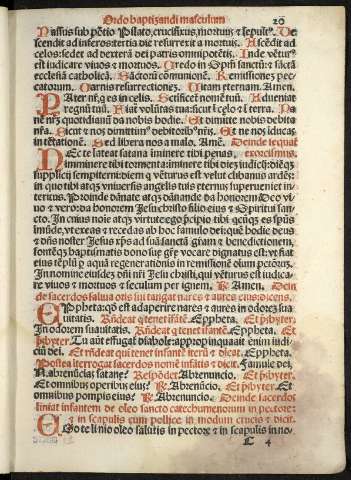 Ordo baptizandi masculum 20
Passus sub põtio Pilato, crucifixus, mortuus & sepultꝰ. De
scendit ad inferos: tertia die resurrexit a mortuis. Ascẽdit ad
celos: sedet ad dexterã dei patris omnipotẽtis. Inde vẽturꝰ
est iudicare viuos & mortuos. Credo in Spm̃ sanctũ: & sactã
ecclesiã catholicã. Sactorũ cõmunionẽ. Remissionẽ pec
catorum. Carnis resurrectionem. Vitam eternam. Amen.
Pater nr̃, qui es in celis. Sctificef nomẽ tuũ. Adueniat
regnũ tuũ. Fiat volũtas tua: sicut ĩ celo & ĩ terra. Pa
nẽ nr̃ꝫ quotidianũ da nobis hodie. Et dimitte nobis debita
nr̃a. Sicut & nos dimittimꝰ debitoribꝰ nr̃is. Et ne nos iducas
in tẽtationẽ. Sed libera nos a malo. Amẽ. Deinde sequat
exorcismus.
Nec te lateat satana iminere tibi penas,
imminere tibi tormẽta iminere tibi diez iudicij: diẽ
supplicij sempiterni: diem q̃ vẽturus est velut clibanus ardẽs:
in quo tibi atqꝫ vniuersis angelis tuis eternꝰ superueniet in
teritus. Proinde dãnate atqꝫ dãnande da honorem Deo vi
uo & vero: da honorem Jesu christo filio eius & Spiritui san
cto. In cuius noie atqꝫ virtute
mũde, vt exeas & recedas ab hoc famulo dei: quẽ hodie deus
& dñs noster Jesus xp̃s ad suã sanctã gr̃am & benedictionem,
fontemqꝫ baptismatis dono suo vocare dignatus est: vt fiat
eius tẽplũ ꝑ aquã regenerationis in remissionẽ oim pctorum.
In nomine eiusdẽ dñi nr̃i Jesu christi, qui vẽturus est iudica
re viuos & mortuos & seculum per ignem. R Amen. Dein
de sacerdos salua oris sui tangat nares & aures eius dicens.
Eppheta: qd̃ est adaperire nares & aures in odorẽ sua
uitatis. Rñdeat q̃ tenet ifãtẽ. Eppheta. Et p̃sbyter.
In odorem suauitatis. Rñdeat q̃ tenet ifantẽ. Eppheta. Et
p̃sbyter. Tu aũt effugal diabole: appropinquait enim iudi
ciũ dei. Et rñdeat qui tenet infantẽ iterũ & dicat. Eppheta.
Postea iterrogat sacerdos nomẽ infãtis & dicat. Famule dei,
N. abrenũcias satane? Respõdet Abrenuncio. Et p̃sbyter.
Et omnibus operibus eius? R Abrenũcio. Et p̃sbyter.
Et omnibus pompis eius? R Abrenuncio. Deinde sacerdos
liniat infantem de oleo sancto catechumenorum in pectore:
& in scapulis cum pollice in modum crucis & dicit.
Ego te linio oleo salutis in pectore & in scapulis in no-
C 4